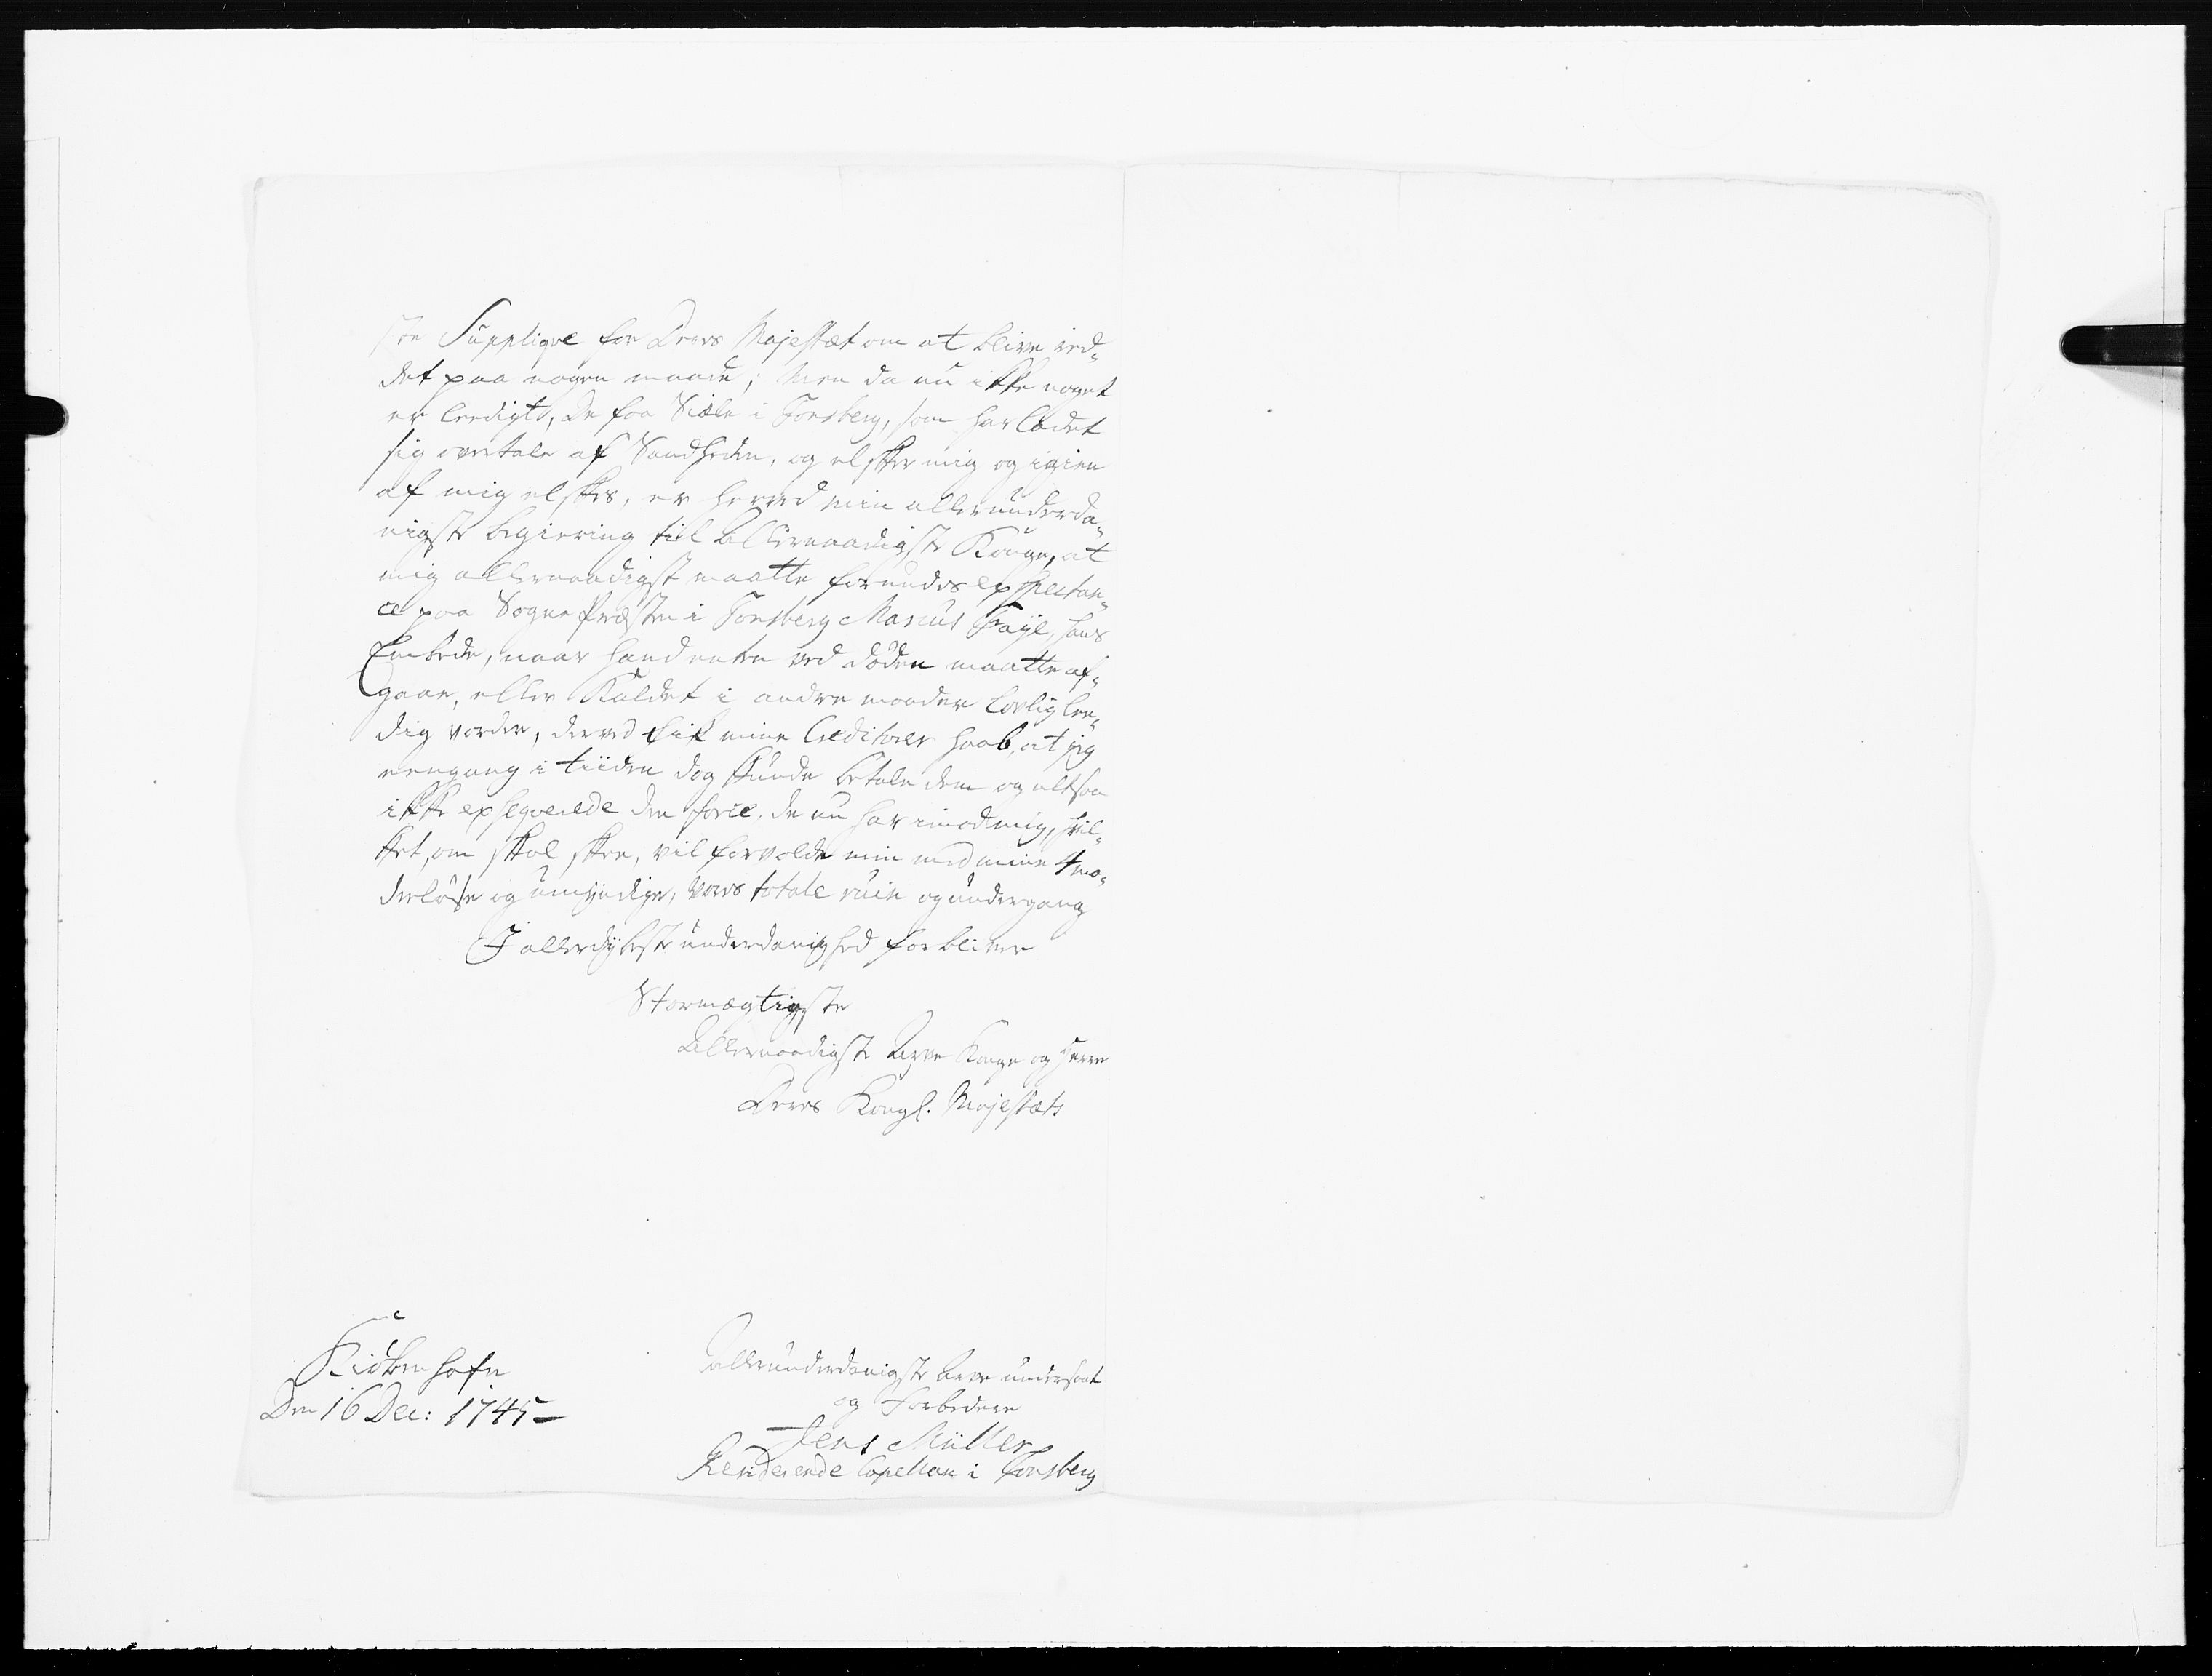 Supplique for Deres Majestæt om at blive red-
det paa nogen maade; Men da nu ikke noget
er leedigt, de faa Siæle i Tonsberg, som har ladet
sig overtale af Sandheden, og elsker mig og igien
af mig elskes, er herved min allerunderda-
nigste begiering til Allernaadigste Konge, at
mig allernaadigst maatte forundes exspectan-
ce paa Sogne Præsten i Tonsberg Marcus Fayl, hans
Embede, naar hand enten ved døden maatte af-
gaae, eller Kaldet i andre maader lovlig lee-
dig vorder, derved fik mine Creditorer haab, at jeg
eengang i tiiden dog kunde betale dem og altsaa
ikke exseqverede den force, de nu har imod mig, hvil-
ket, om skal skee, vil forvolde min med mine 4 mo-
derløse og umyndige, vores totale ruin og undergang
I allerdybeste underdanighed forbliver
Stormægtigste
Allernaadigste Arve Konge og Herre
Deres Kongl. Majestæts
Kiøbenhafn
Den 16 Dec: 1745 –
allerunderdanigste Arve undersaat
og Forbedere
Jens Müller
Residerende Capellan i Tonsberg